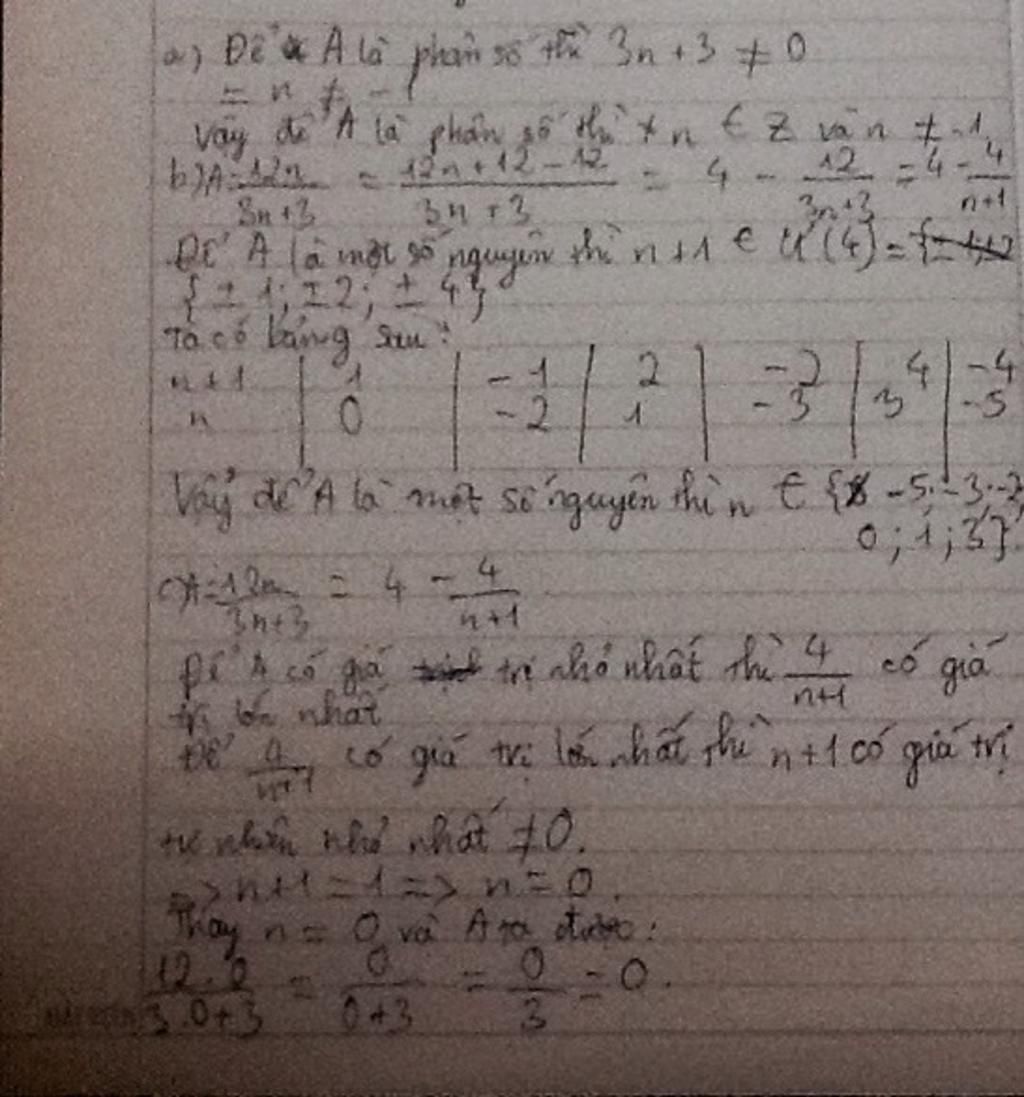 a) Để A là phân số thì 3n + 3 ≠ 0
= n ≠ -1
Vậy để A là phân số thì n ∈ Z và n ≠ -1
b) A = 12n/3n+3 = 12n+12-12/3n+3 = 4 - 12/3n+3 = 4 - 4/n+1
Để A là một số nguyên thì n+1 ∈ Ư(4) =
{±1; ±2; ±4}
Ta có bảng sau:
n+1 | 1 | -1 | 2 | -2 | 4 | -4
n | 0 | -2 | 1 | -3 | 3 | -5
Vậy để A là một số nguyên thì n ∈ { -5; -3; -2
0; 1; 3}
c) A = 12n/3n+3 = 4 - 4/n+1
Để A có giá trị nhỏ nhất thì 4/n+1 có giá
trị lớn nhất
Để 4/n+1 có giá trị lớn nhất thì n+1 có giá trị
tự nhiên nhỏ nhất ≠ 0.
=> n+1 = 1 => n = 0.
Thay n = 0 và A ta được:
12.0/3.0+3 = 0/0+3 = 0/3 = 0.